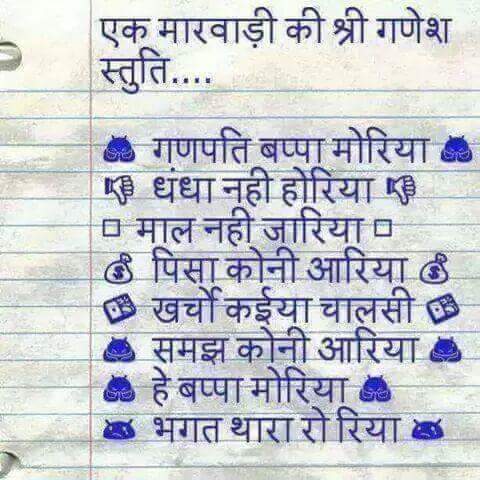 एक मारवाड़ी की श्री गणेश
स्तुति....
गणपति बप्पा मोरिया
धंधा नही होरिया
माल नही जारिया
पिसा कोनी आरिया
खर्चो कईया चालसी
समझ कोनी आरिया
हे बप्पा मोरिया
भगत थारा रो रिया